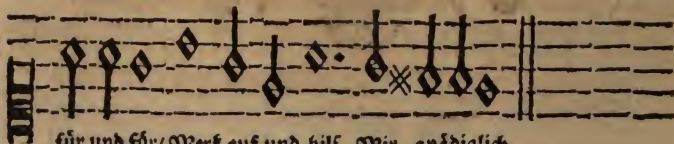 für und für/ Merk auf und hilf Mir gnädiglich.